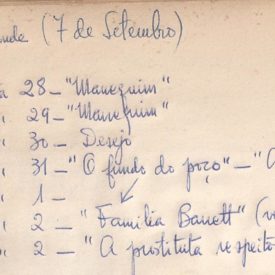 (7 de Setembro)
28 - "Manequim"
" 29 - "Manequim"
" 30 - Desejo
" 31 - "O fundo do poço" - "
" 1 -
" 2 - "Familia Barrett" (
" 2 - "A prostituta respeito